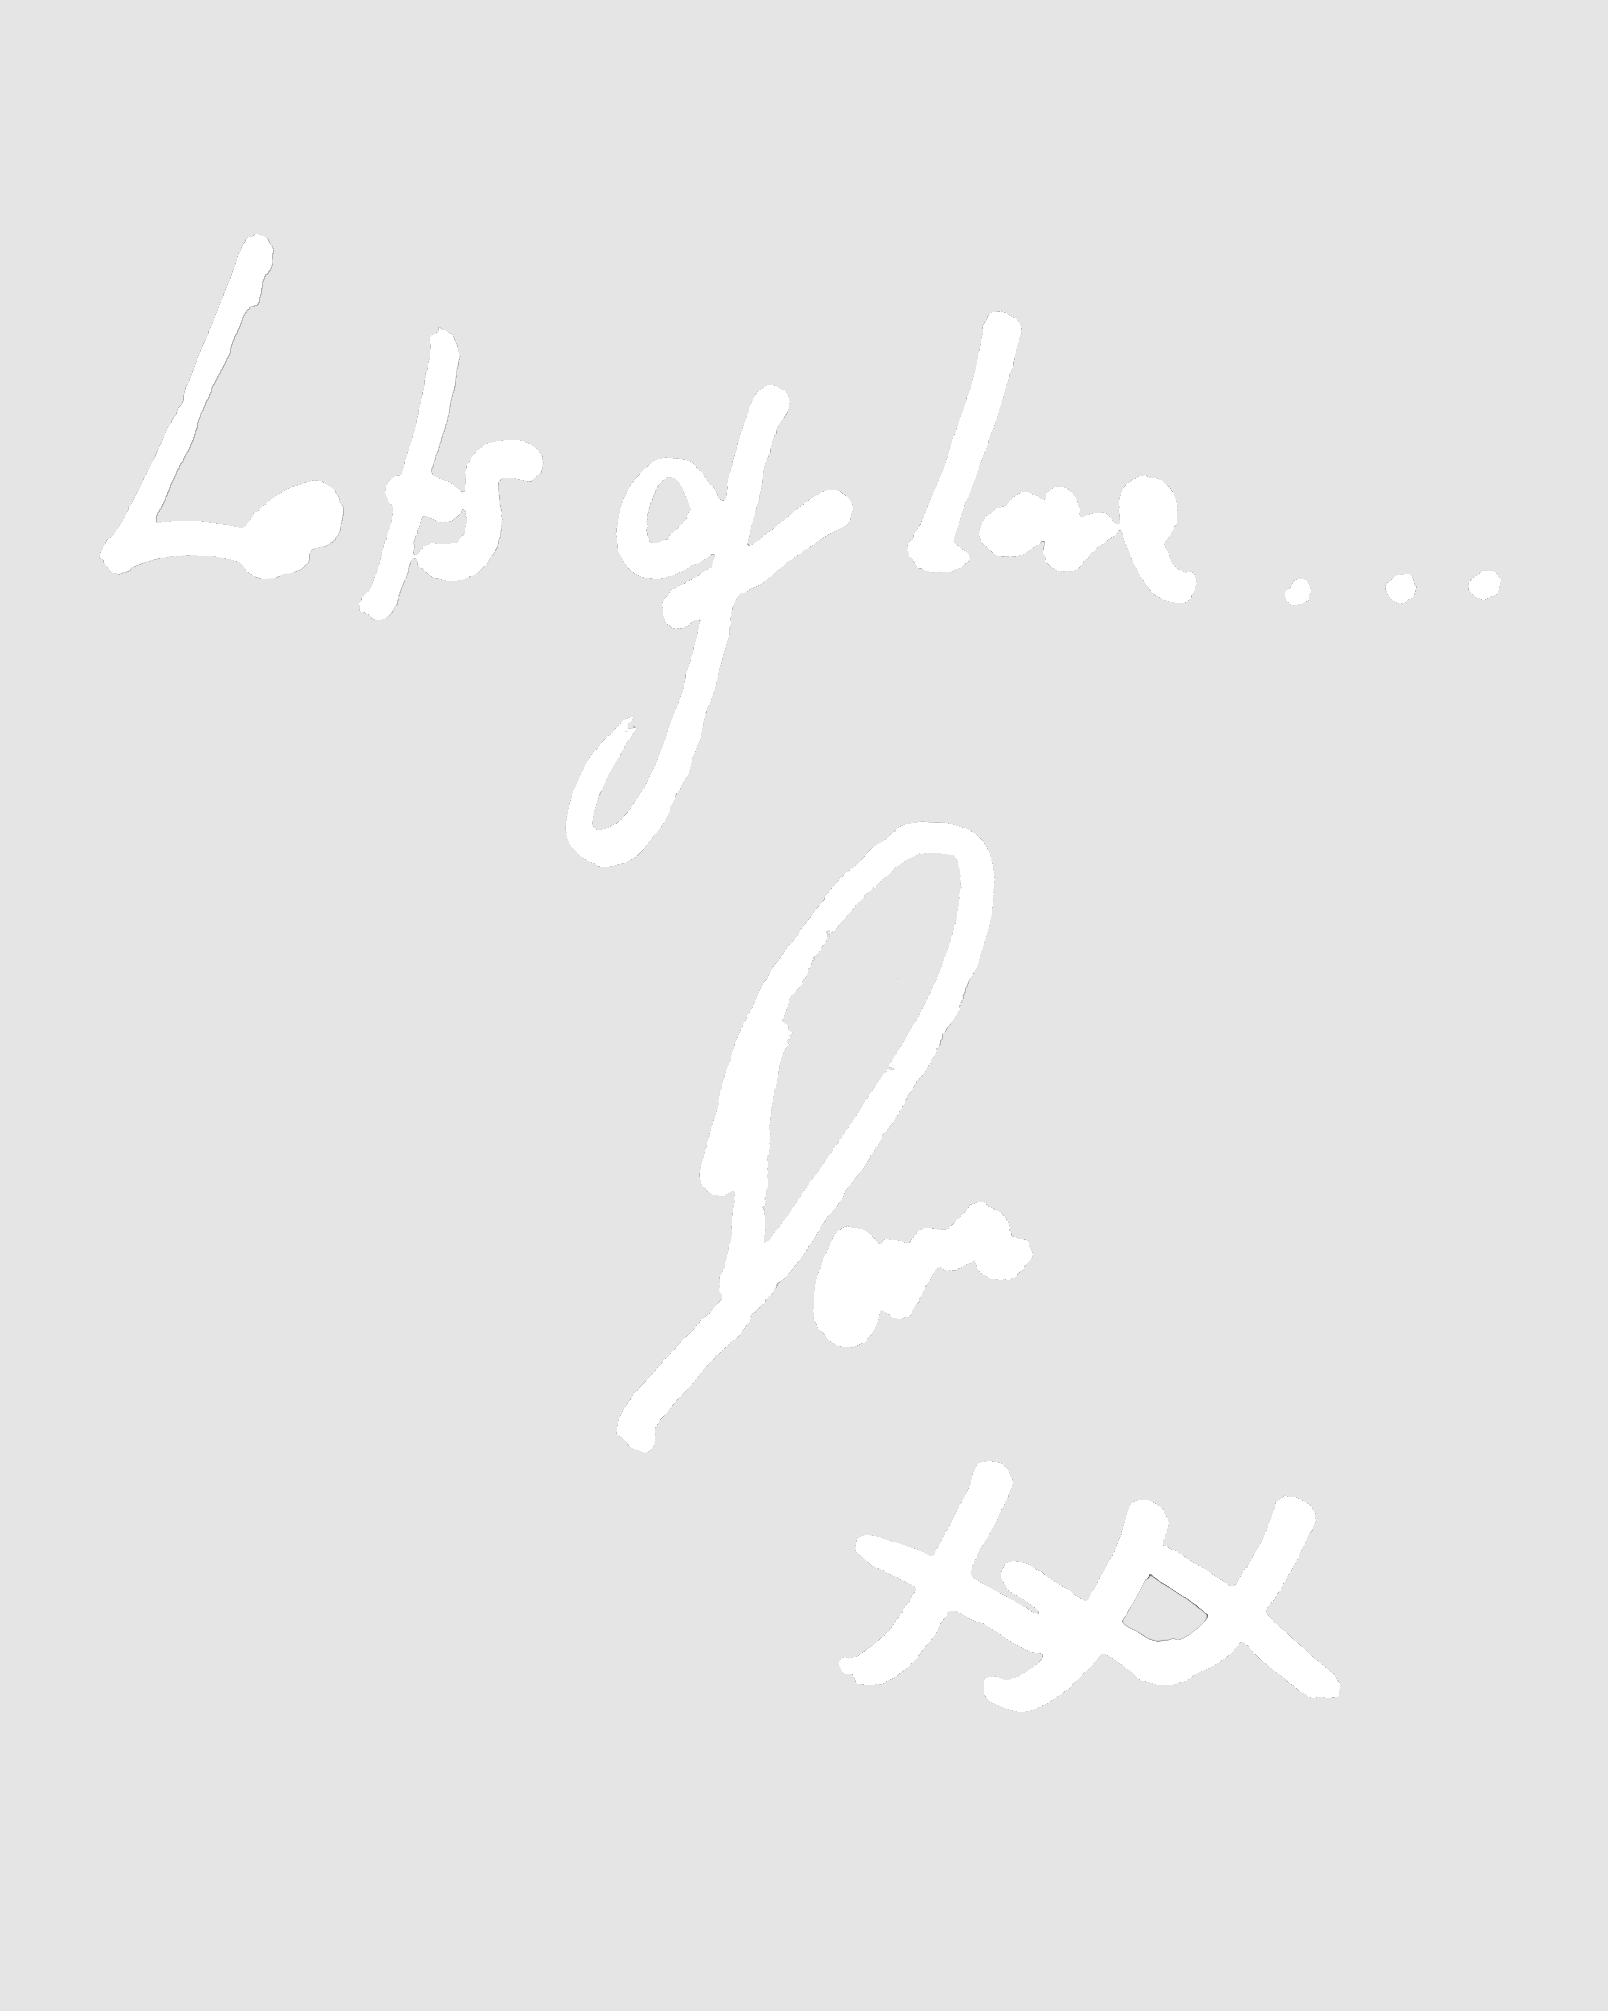 Lots of love ...
xxx